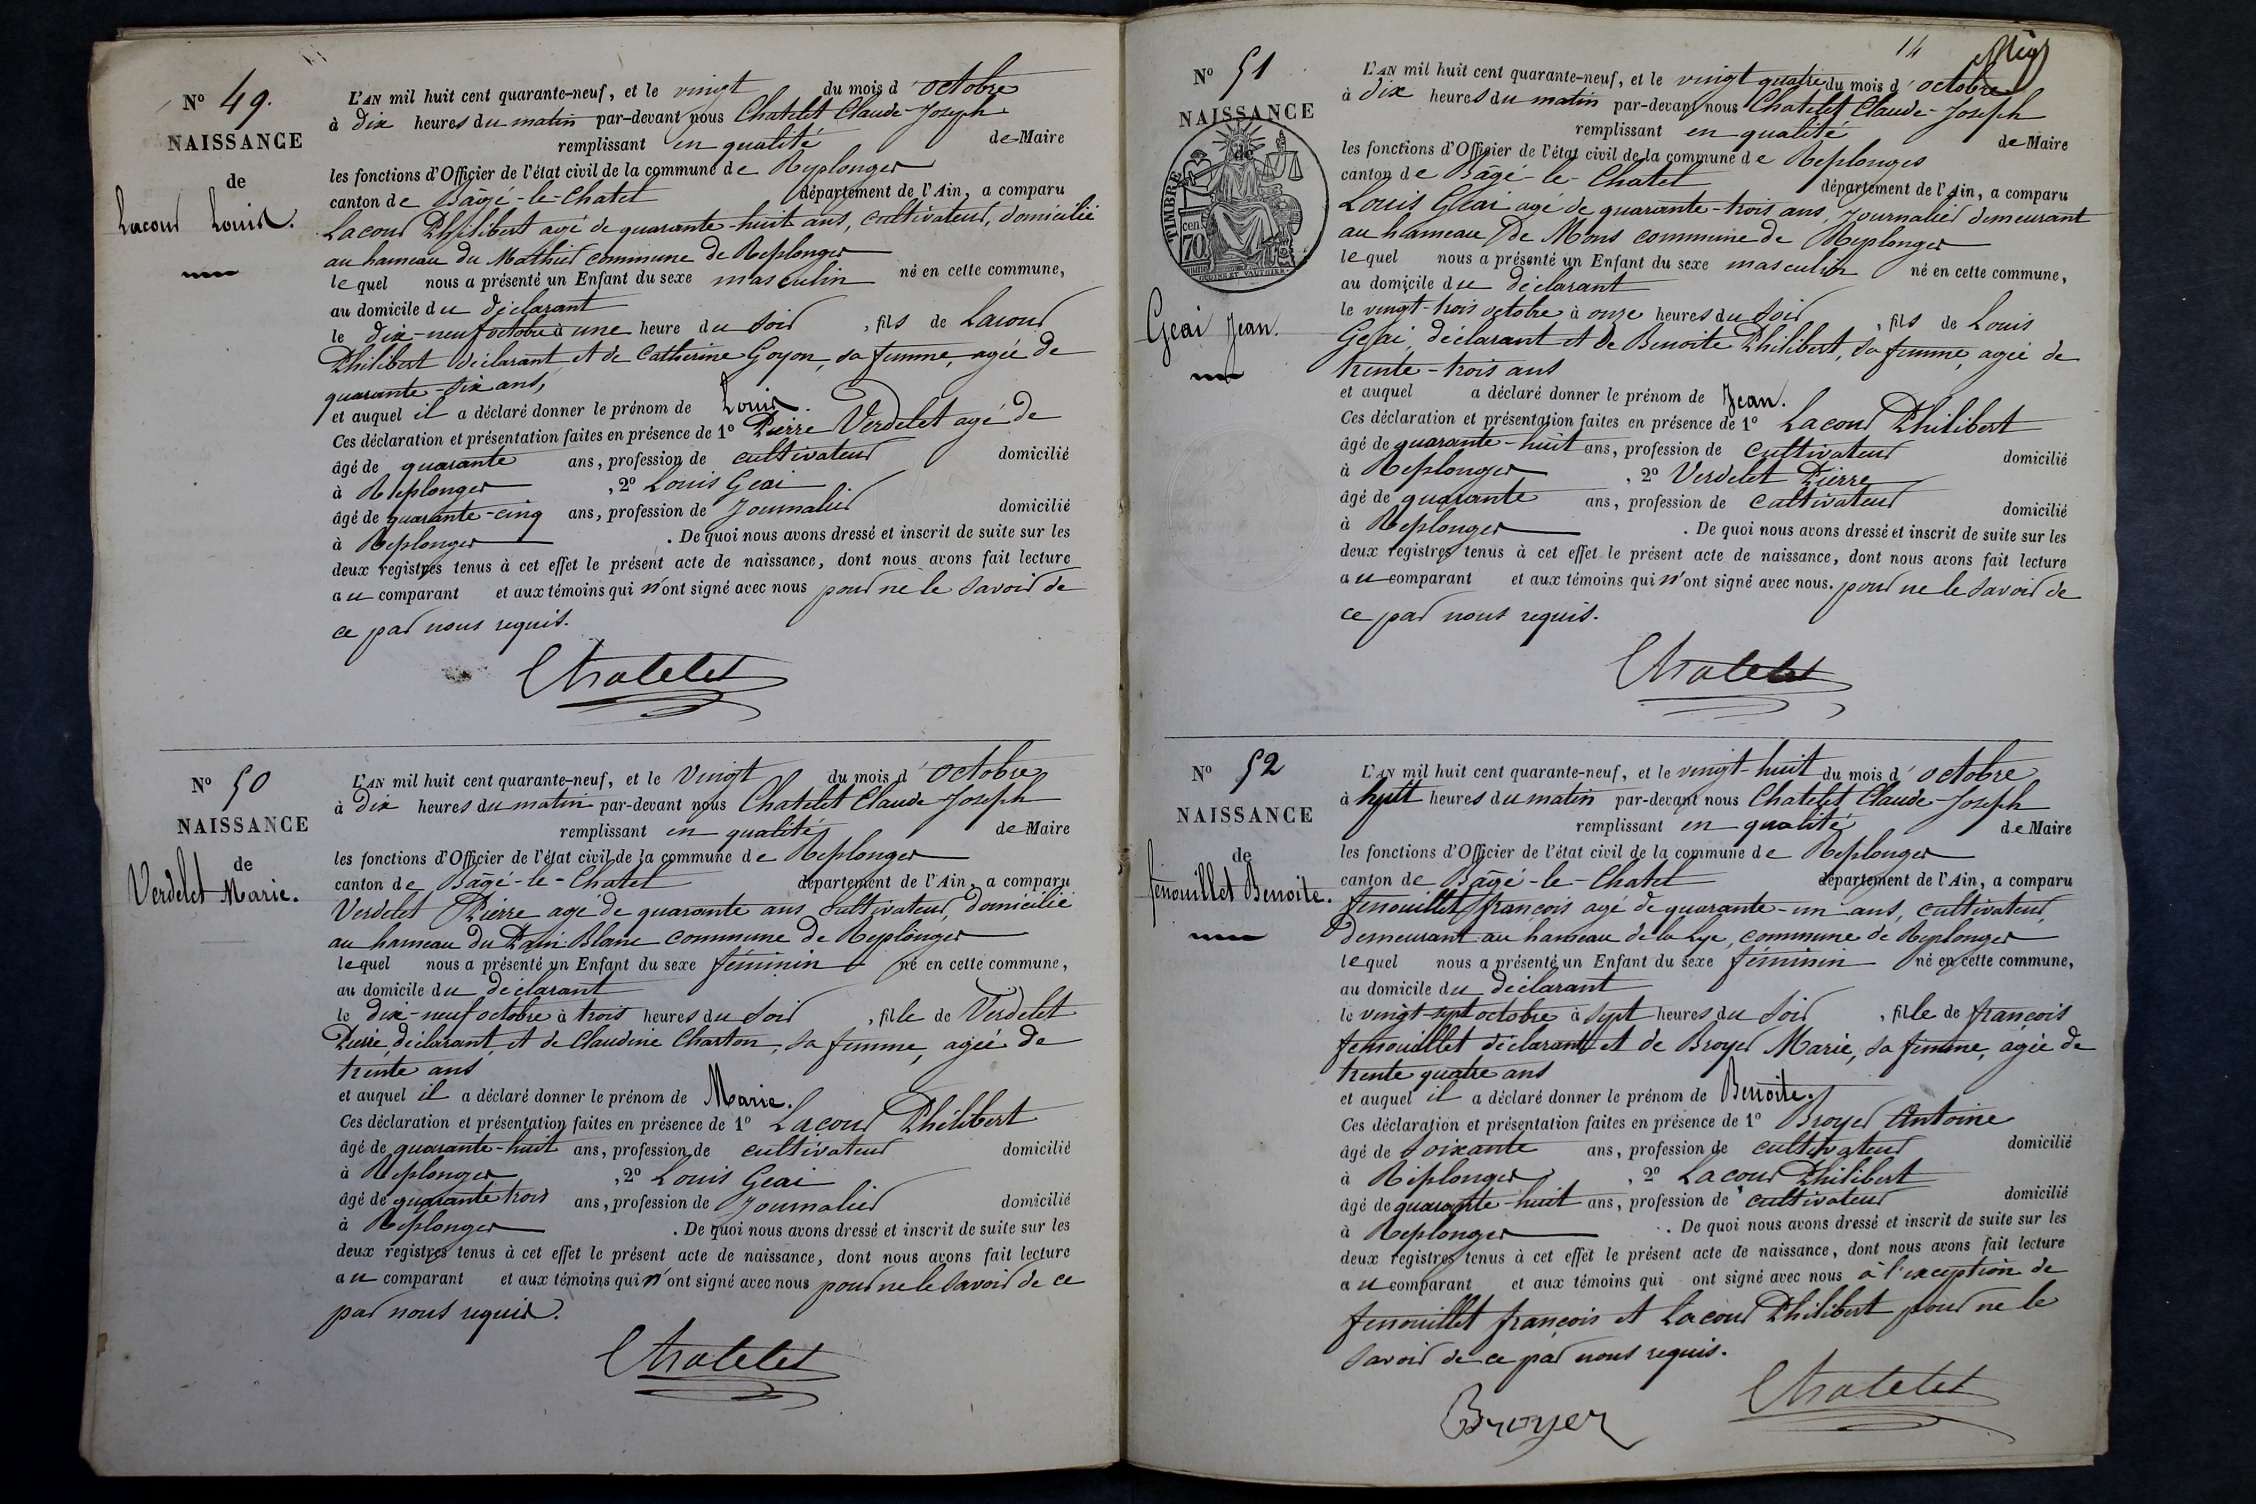 N° 49.
NAISSANCE
de
Lacour Louis.
L'AN mil huit cent quarante-neuf, et le vingt du mois d'octobre
à dix heures du matin par-devant nous Chatelet Claude-Joseph
remplissant en qualité de Maire
les fonctions d'Officier de l'état civil de la commune de Replonges
canton de Bâgé-le-Chatel département de l'Ain, a comparu
Lacour Philibert agé de quarante-huit ans, cultivateur, domicilié
au hameau du Mathier commune de Replonges
lequel nous a présenté un Enfant du sexe masculin né en cette commune,
au domicile du déclarant
le dix-neuf octobre à une heure du soir, fils de Lacour
Philibert déclarant et de Catherine Goyon, sa femme, agée de
quarante-six ans,
et auquel il a déclaré donner le prénom de Louis.
Ces déclaration et présentation faites en présence de 1° Pierre Verdelet agé de
âgé de quarante ans, profession de cultivateur domicilié
à Replonges, 2° Louis Geai
âgé de quarante-cinq ans, profession de Journalier domicilié
à Replonges. De quoi nous avons dressé et inscrit de suite sur les
deux registres tenus à cet effet le présent acte de naissance, dont nous avons fait lecture
au comparant et aux témoins qui n'ont signé avec nous pour ne le savoir de
ce par nous requis.
Chatelet
N° 50
NAISSANCE
de
Verdelet Marie.
L'AN mil huit cent quarante-neuf, et le vingt du mois d'octobre
à dix heures du matin par-devant nous Chatelet Claude-Joseph
remplissant en qualité de Maire
les fonctions d'Officier de l'état civil de la commune de Replonges
canton de Bâgé-le-Chatel département de l'Ain, a comparu
Verdelet Pierre agé de quarante ans cultivateur, domicilié
au hameau du Pain Blanc commune de Replonges
lequel nous a présenté un Enfant du sexe féminin né en cette commune,
au domicile du déclarant
le dix-neuf octobre à trois heures du soir, fille de Verdelet
Pierre, déclarant, et de Claudine Charton, sa femme, agée de
trente ans
et auquel il a déclaré donner le prénom de Marie.
Ces déclaration et présentation faites en présence de 1° Lacour Philibert
âgé de quarante-huit ans, profession de cultivateur domicilié
à Replonges, 2° Louis Geai
âgé de quarante trois ans, profession de Journalier domicilié
à Replonges. De quoi nous avons dressé et inscrit de suite sur les
deux registres tenus à cet effet le présent acte de naissance, dont nous avons fait lecture
au comparant et aux témoins qui n'ont signé avec nous pour ne le savoir de ce
par nous requis.
Chatelet
14
N° 51
NAISSANCE
de
TIMBRE
70 cent
Geai Jean.
L'AN mil huit cent quarante-neuf, et le vingt quatre du mois d'octobre
à dix heures du matin par-devant nous Chatelet Claude-Joseph
remplissant en qualité de Maire
les fonctions d'Officier de l'état civil de la commune de Replonges
canton de Bâgé-le-Chatel département de l'Ain, a comparu
Louis Geai agé de quarante-trois ans, journalier demeurant
au hameau de Mons commune de Replonges
lequel nous a présenté un Enfant du sexe masculin né en cette commune,
au domicile du déclarant
le vingt-trois octobre à onze heures du soir, fils de Louis
Geai, déclarant et de Benoite Philibert, sa femme, agée de
trente-trois ans
et auquel a déclaré donner le prénom de Jean.
Ces déclaration et présentation faites en présence de 1° Lacour Philibert
âgé de quarante-huit ans, profession de cultivateur domicilié
à Replonges, 2° Verdelet Pierre
âgé de quarante ans, profession de cultivateur domicilié
à Replonges. De quoi nous avons dressé et inscrit de suite sur les
deux registres tenus à cet effet le présent acte de naissance, dont nous avons fait lecture
au comparant et aux témoins qui n'ont signé avec nous. pour ne le savoir de
ce par nous requis.
Chatelet
N° 52
NAISSANCE
de
fenouillet Benoite.
L'AN mil huit cent quarante-neuf, et le vingt-huit du mois d'octobre
à huit heures du matin par-devant nous Chatelet Claude-Joseph
remplissant en qualité de Maire
les fonctions d'Officier de l'état civil de la commune de Replonges
canton de Bâgé-le-Chatel département de l'Ain, a comparu
fenouillet françois agé de quarante-un ans, cultivateur,
demeurant au hameau de la Lye, commune de Replonges
lequel nous a présenté un Enfant du sexe féminin né en cette commune,
au domicile du déclarant
le vingt-sept octobre à sept heures du soir, fille de françois
fenouillet déclarant et de Broyer Marie, sa femme, agée de
trente quatre ans
et auquel il a déclaré donner le prénom de Benoite.
Ces déclaration et présentation faites en présence de 1° Broyer Antoine
âgé de soixante ans, profession de cultivateur domicilié
à Replonges, 2° Lacour Philibert
âgé de quarante-huit ans, profession de cultivateur domicilié
à Replonges. De quoi nous avons dressé et inscrit de suite sur les
deux registres tenus à cet effet le présent acte de naissance, dont nous avons fait lecture
au comparant et aux témoins qui ont signé avec nous à l'exception de
fenouillet françois et Lacour Philibert pour ne le
savoir de ce par nous requis.
Chatelet
Broyer